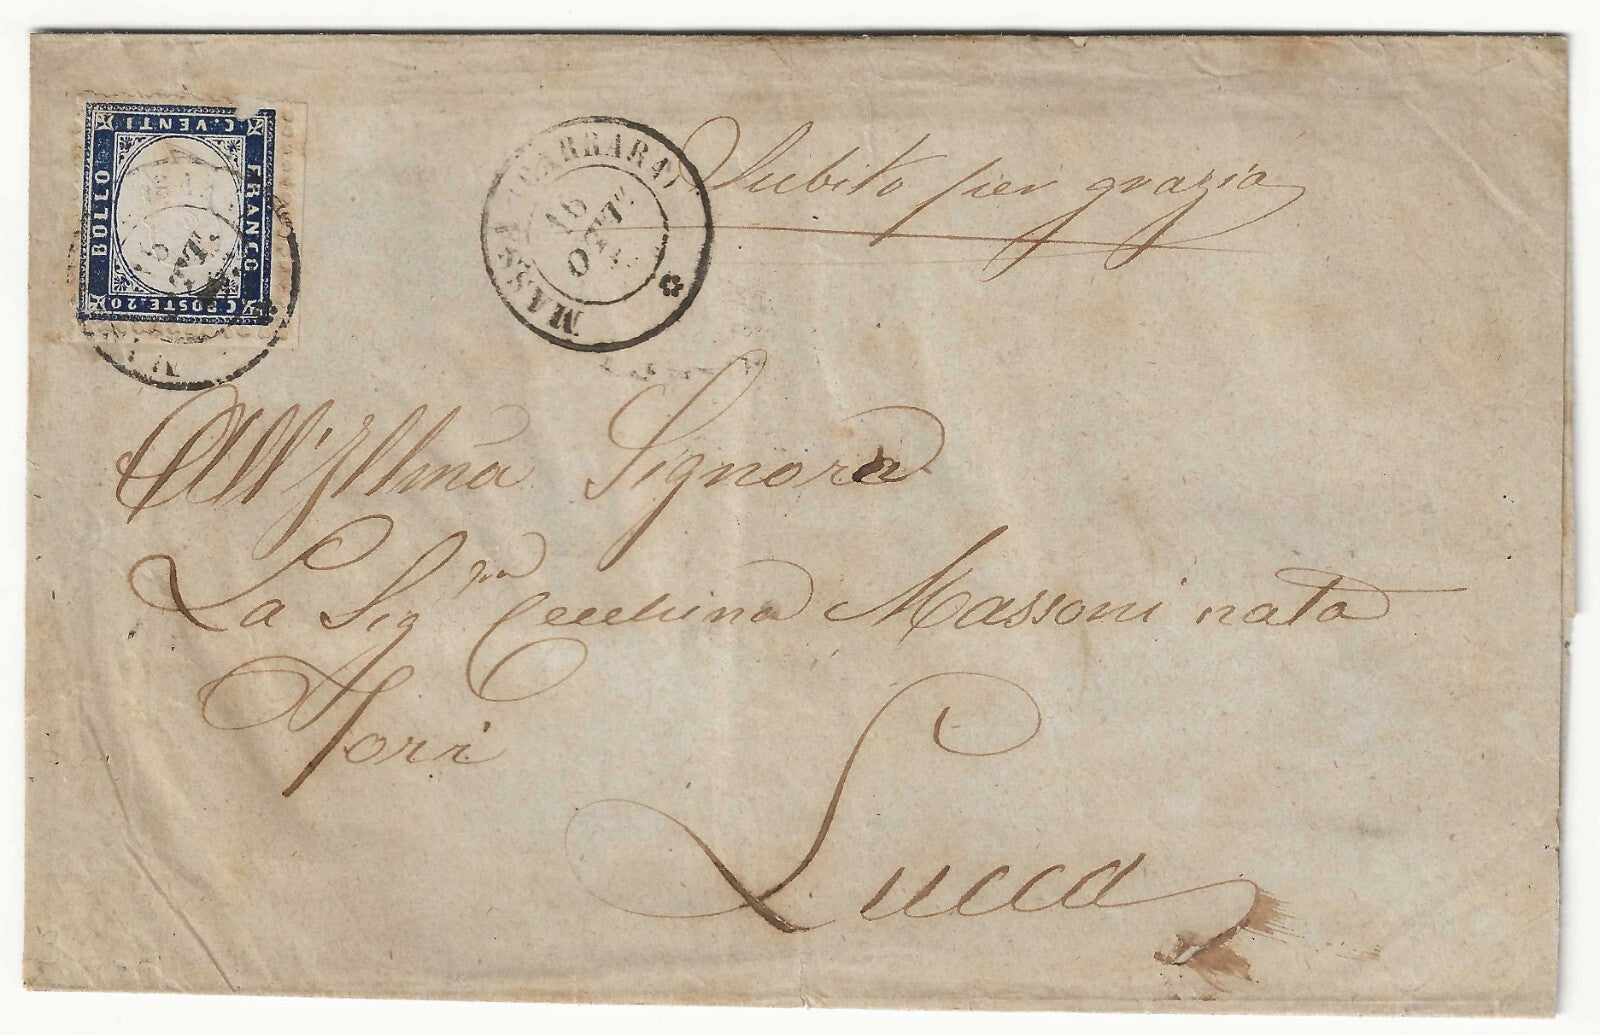 C. VENTI
FRANCO
C. POSTE. 20
BOLLO
MASSA (CARRARA)
16
OTT.
Subito per grazia
All'Illma Signora
La Sigra Cecchina Massoni nata
Torri
Lucca